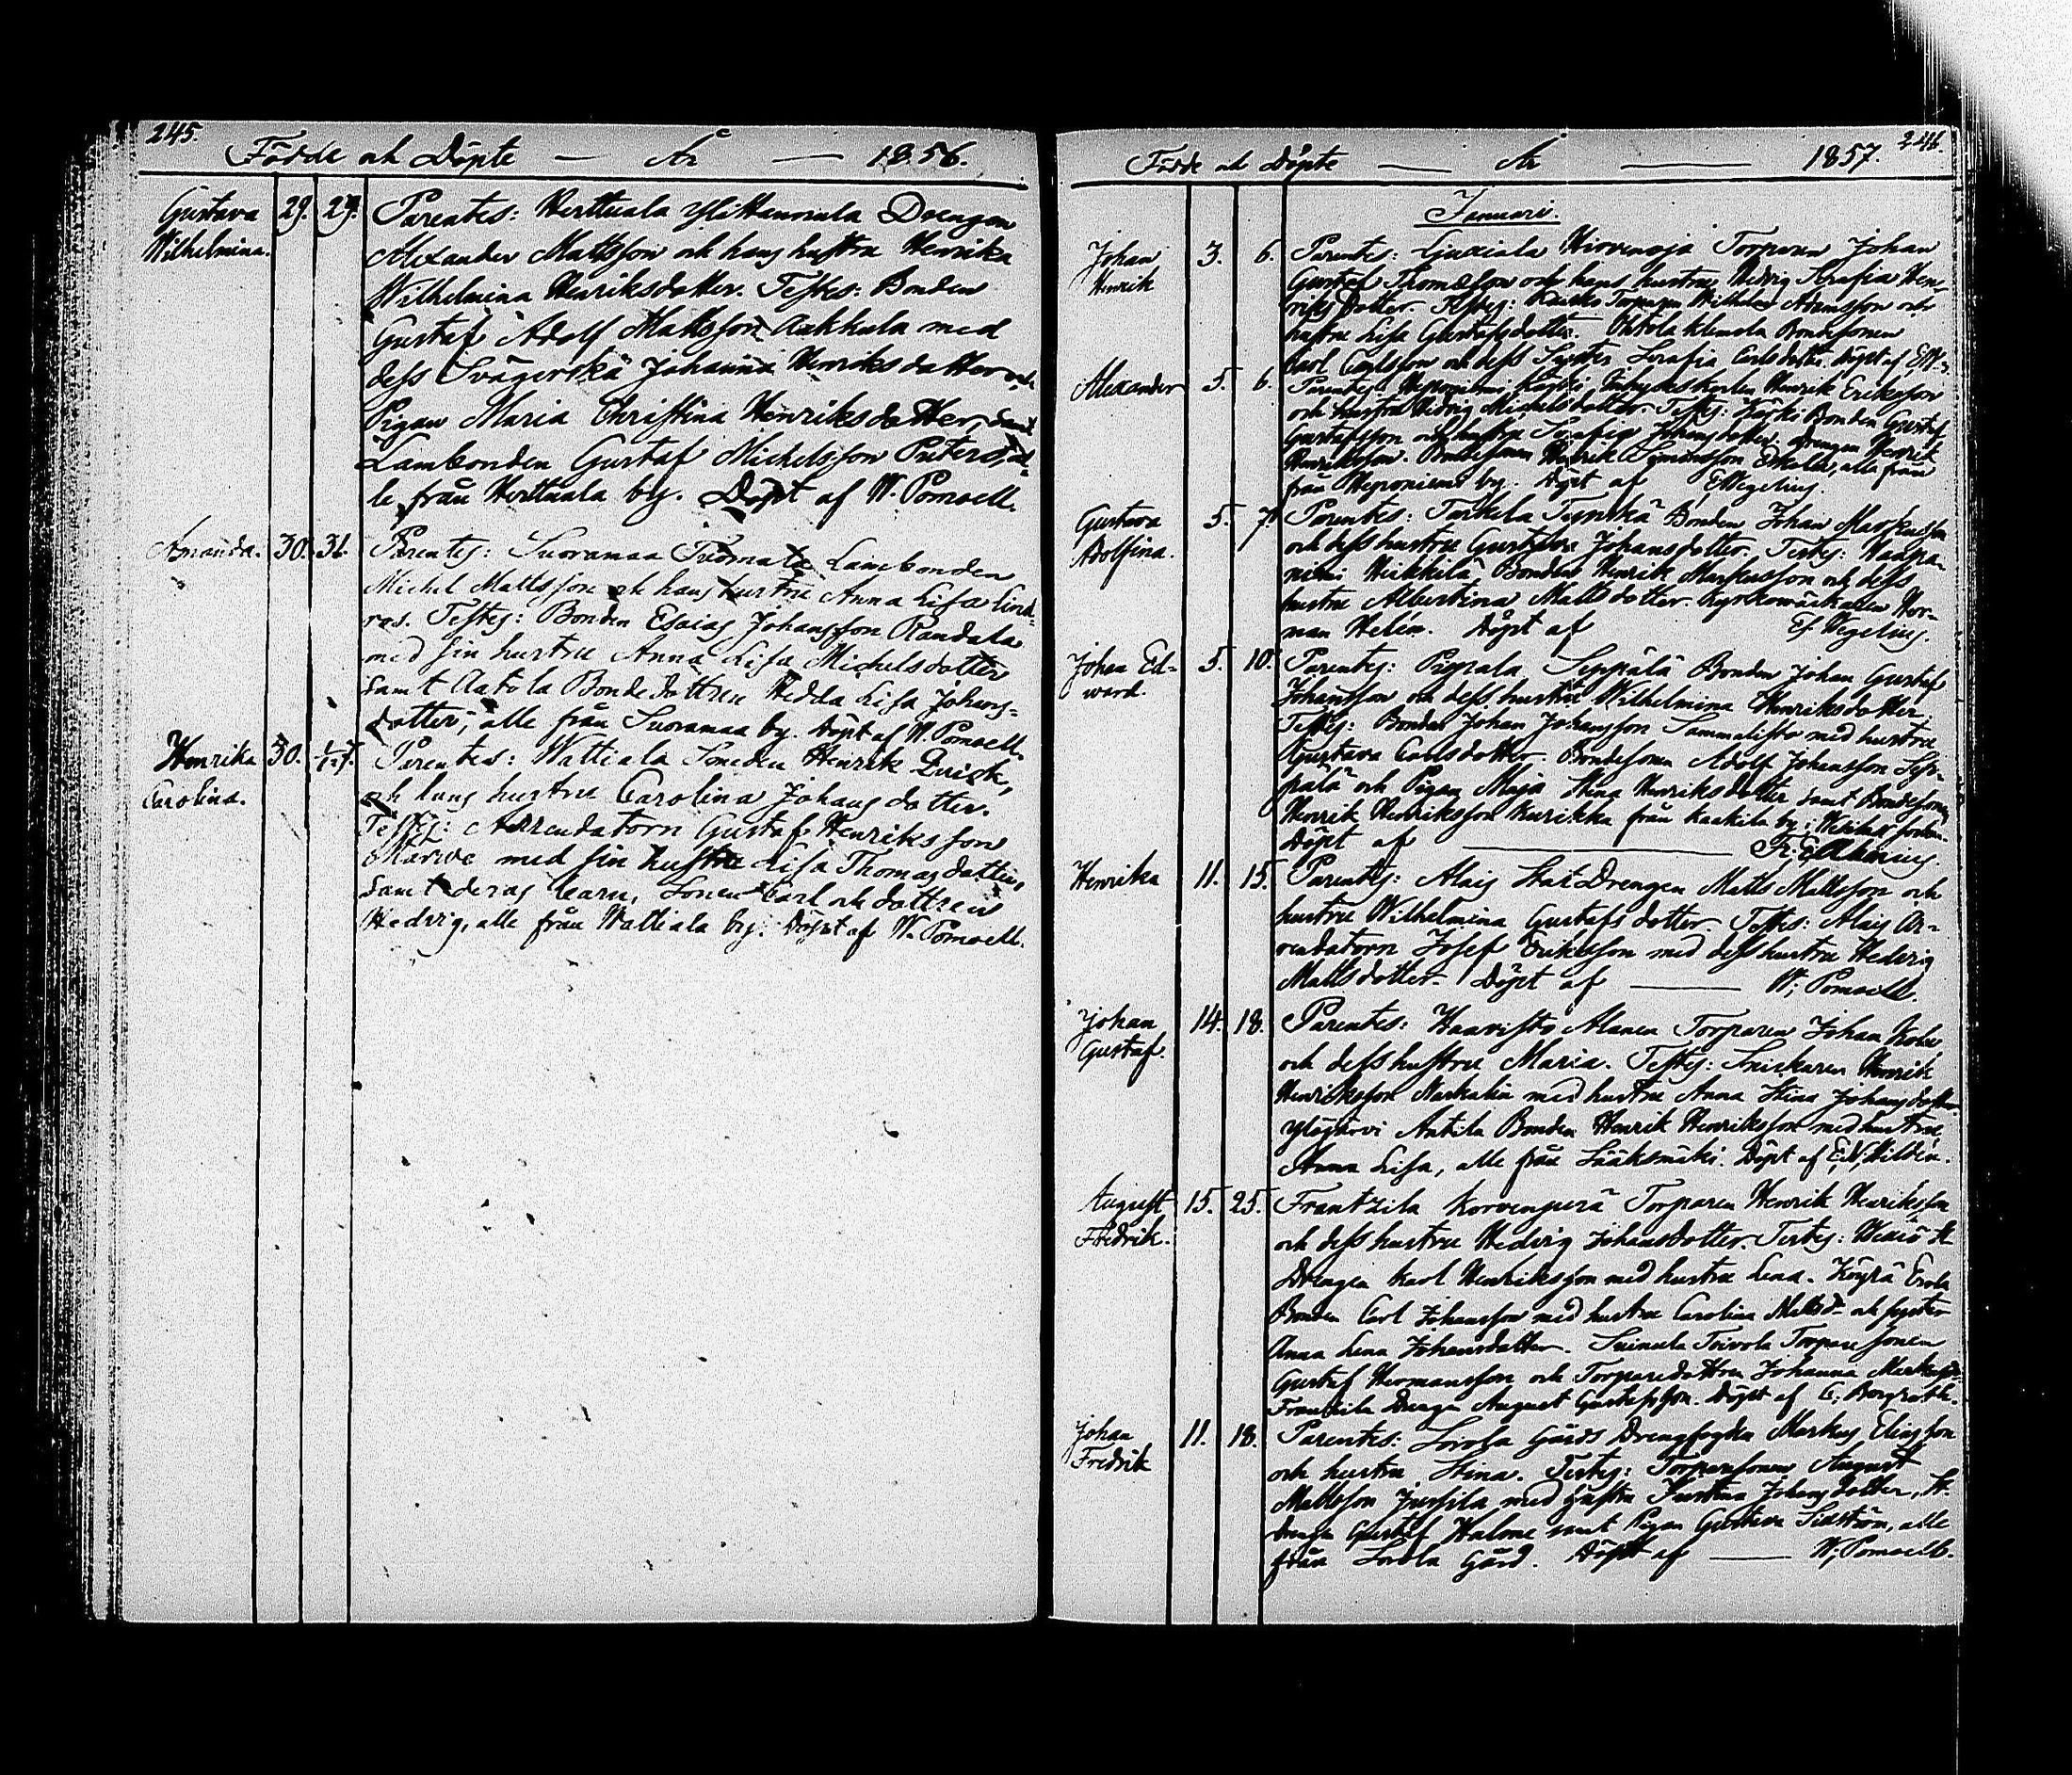 245.
Födde och Döpte — År — 1856.
Gustava 29. 29. Parentes: Herttuala Drengen
Wilhelmina. Alexander Mattsson och hans hustru Henrika
Wilhelmina Henriksdotter. Testes: Bonden
Gustaf Adolf Mattsson Aakkula med
dess Svägerskä Johanna Henriksdotter och
Pigan Maria Christina Henriksdotter, samt
Lambonden Gustaf Michelsson al-
le från Herttuala by. Döpt af W. Pomoell.
Amanda. 30. 31. Parentes: Suoramaa Lambonden
Michel Mattsson och hans hustru Anna Lisa Lind-
ros. Testes: Bonden Esaias Johansson Randala
med sin hustru Anna Lisa Michelsdotter
samt Aatola Bondedottren Hedda Lisa Johans-
dotter, alle från Suoramaa by. Döpt af W. Pomoell.
Henrika 30. Parentes: Wattiala Smeden Henrik Quick,
Carolina. och hans hustru Carolina Johansdotter.
Testes: Arrendatorn Gustaf Henriksson
med sin hustru Lisa Thomasdotter,
samt deras barn, Sonen Carl och dottren
Hedvig, alle från Wattiala by. Döpt af W. Pomoell.
246.
Födde och Döpte — År — 1857.
Januari.
Johan 3. 6. Parentes: Liuxiala Hirvenoja Torparen Johan
Henrik Gustaf Thomasson och hans hustru Hedvig Serafia Hen-
riks Dotter. Testes: Torparen Wilhelm Adamsson och
hustru Lisa Gustafsdotter. Ohtola Klemola Bondesonen
Karl Carlsson och dess Syster Serafia Carlsdotter. Döpt af
Alexander 5. 6. Parentes: Heponiemi Inhyseskarlen Henrik Eriksson
och hustru Hedvig Michelsdotter. Testes: Bonden Gustaf
Gustafsson och hustru Serafia Johansdotter, Drengen Henrik
Henriksson. Bondesonen Henrik alle från
från Heponiemi by. Döpt af E Wegelius.
Gustava 5. 7. Parentes: Tarkela Bonden Johan Markusson
Adolfina. och dess hustru Gustava Johansdotter. Testes: Haapa-
niemi Heikkilä Bonden Henrik Markusson och dess
hustru Albertina Mattsdotter. Kyrkowäktaren Her-
man Helen. Döpt af E. Wegelius.
Johan Ed- 5. 10. Parentes: Pispala Seppälä Bonden Johan Gustaf
ward. Johansson och dess hustru Wilhelmina Henriksdotter.
Testes: Bonden Johan Johansson Sammalisto med hustru
Gustava Carlsdotter. Bondesonen Adolf Johansson Sep-
pälä och Pigan Maja Stina Henriksdotter samt Bondesonen
Henrik Henriksson Kurikka från Kaakila by;
Döpt af —
Henrika 11. 15. Parentes: Alais Stat Drengen Matts Mattsson och
hustru Wilhelmina Gustafsdotter. Testes: Alais Ar-
rendatorn Josef Eriksson med dess hustru Hedvig
Mattsdotter. Döpt af — W; Pomoell.
Johan 14. 18. Parentes: Haavisto Alanen Torparen Johan
Gustaf. och dess hustru Maria. Testes: Snickaren Henrik
Henriksson med hustru Anna Stina Johansdotter
Ylöjärvi Antila Bonden Henrik Henriksson med hustru
Anna Lisa, alle från Sääksmäki. Döpt af
August 15. 25. Frantzila Korvenperä Torparen Henrik Henriksson
Fredrik. och dess hustru Hedvig Johansdotter. Testes:
Drengen Karl Henriksson med hustru Lena. Köyrä Erola
Bonden Carl Johansson med hustru Carolina Mattsd. och syster
Anna Lena Johansdotter. Suinula Toivola Torparesonen
Gustaf Hermansson och Torparedottren Johanna
Frantzila Dreng August Gustafsson. Döpt af
Johan 11. 18. Parentes: Sorola Gårds Drengfogden Markus Eliasson
Fredrik och hustru Stina. Testes: Torparesonen August
Mattsson Jussila med hustru Justina Johansdotter, St.
Drengen Gustaf Halone samt Pigan Gustava Sidström, alle
från Sorola Gård. Döpt af — W; Pomoell.